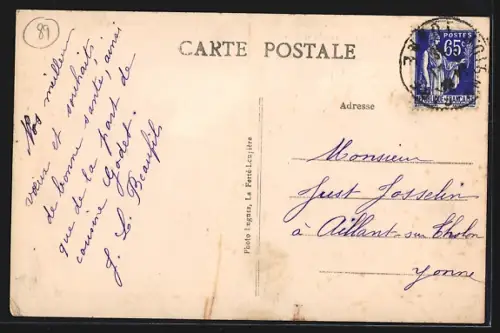 89
CARTE POSTALE
POSTES
65c
Adresse
Nos meilleurs
vœux et souhaits
de bonne santé, ainsi
que de la part de
cousine Godet.
J. L. Beaufils
Photo Lugues, La Ferté-Loupière
Monsieur
Just Josselin
à Aillant-sur-Tholon
Yonne